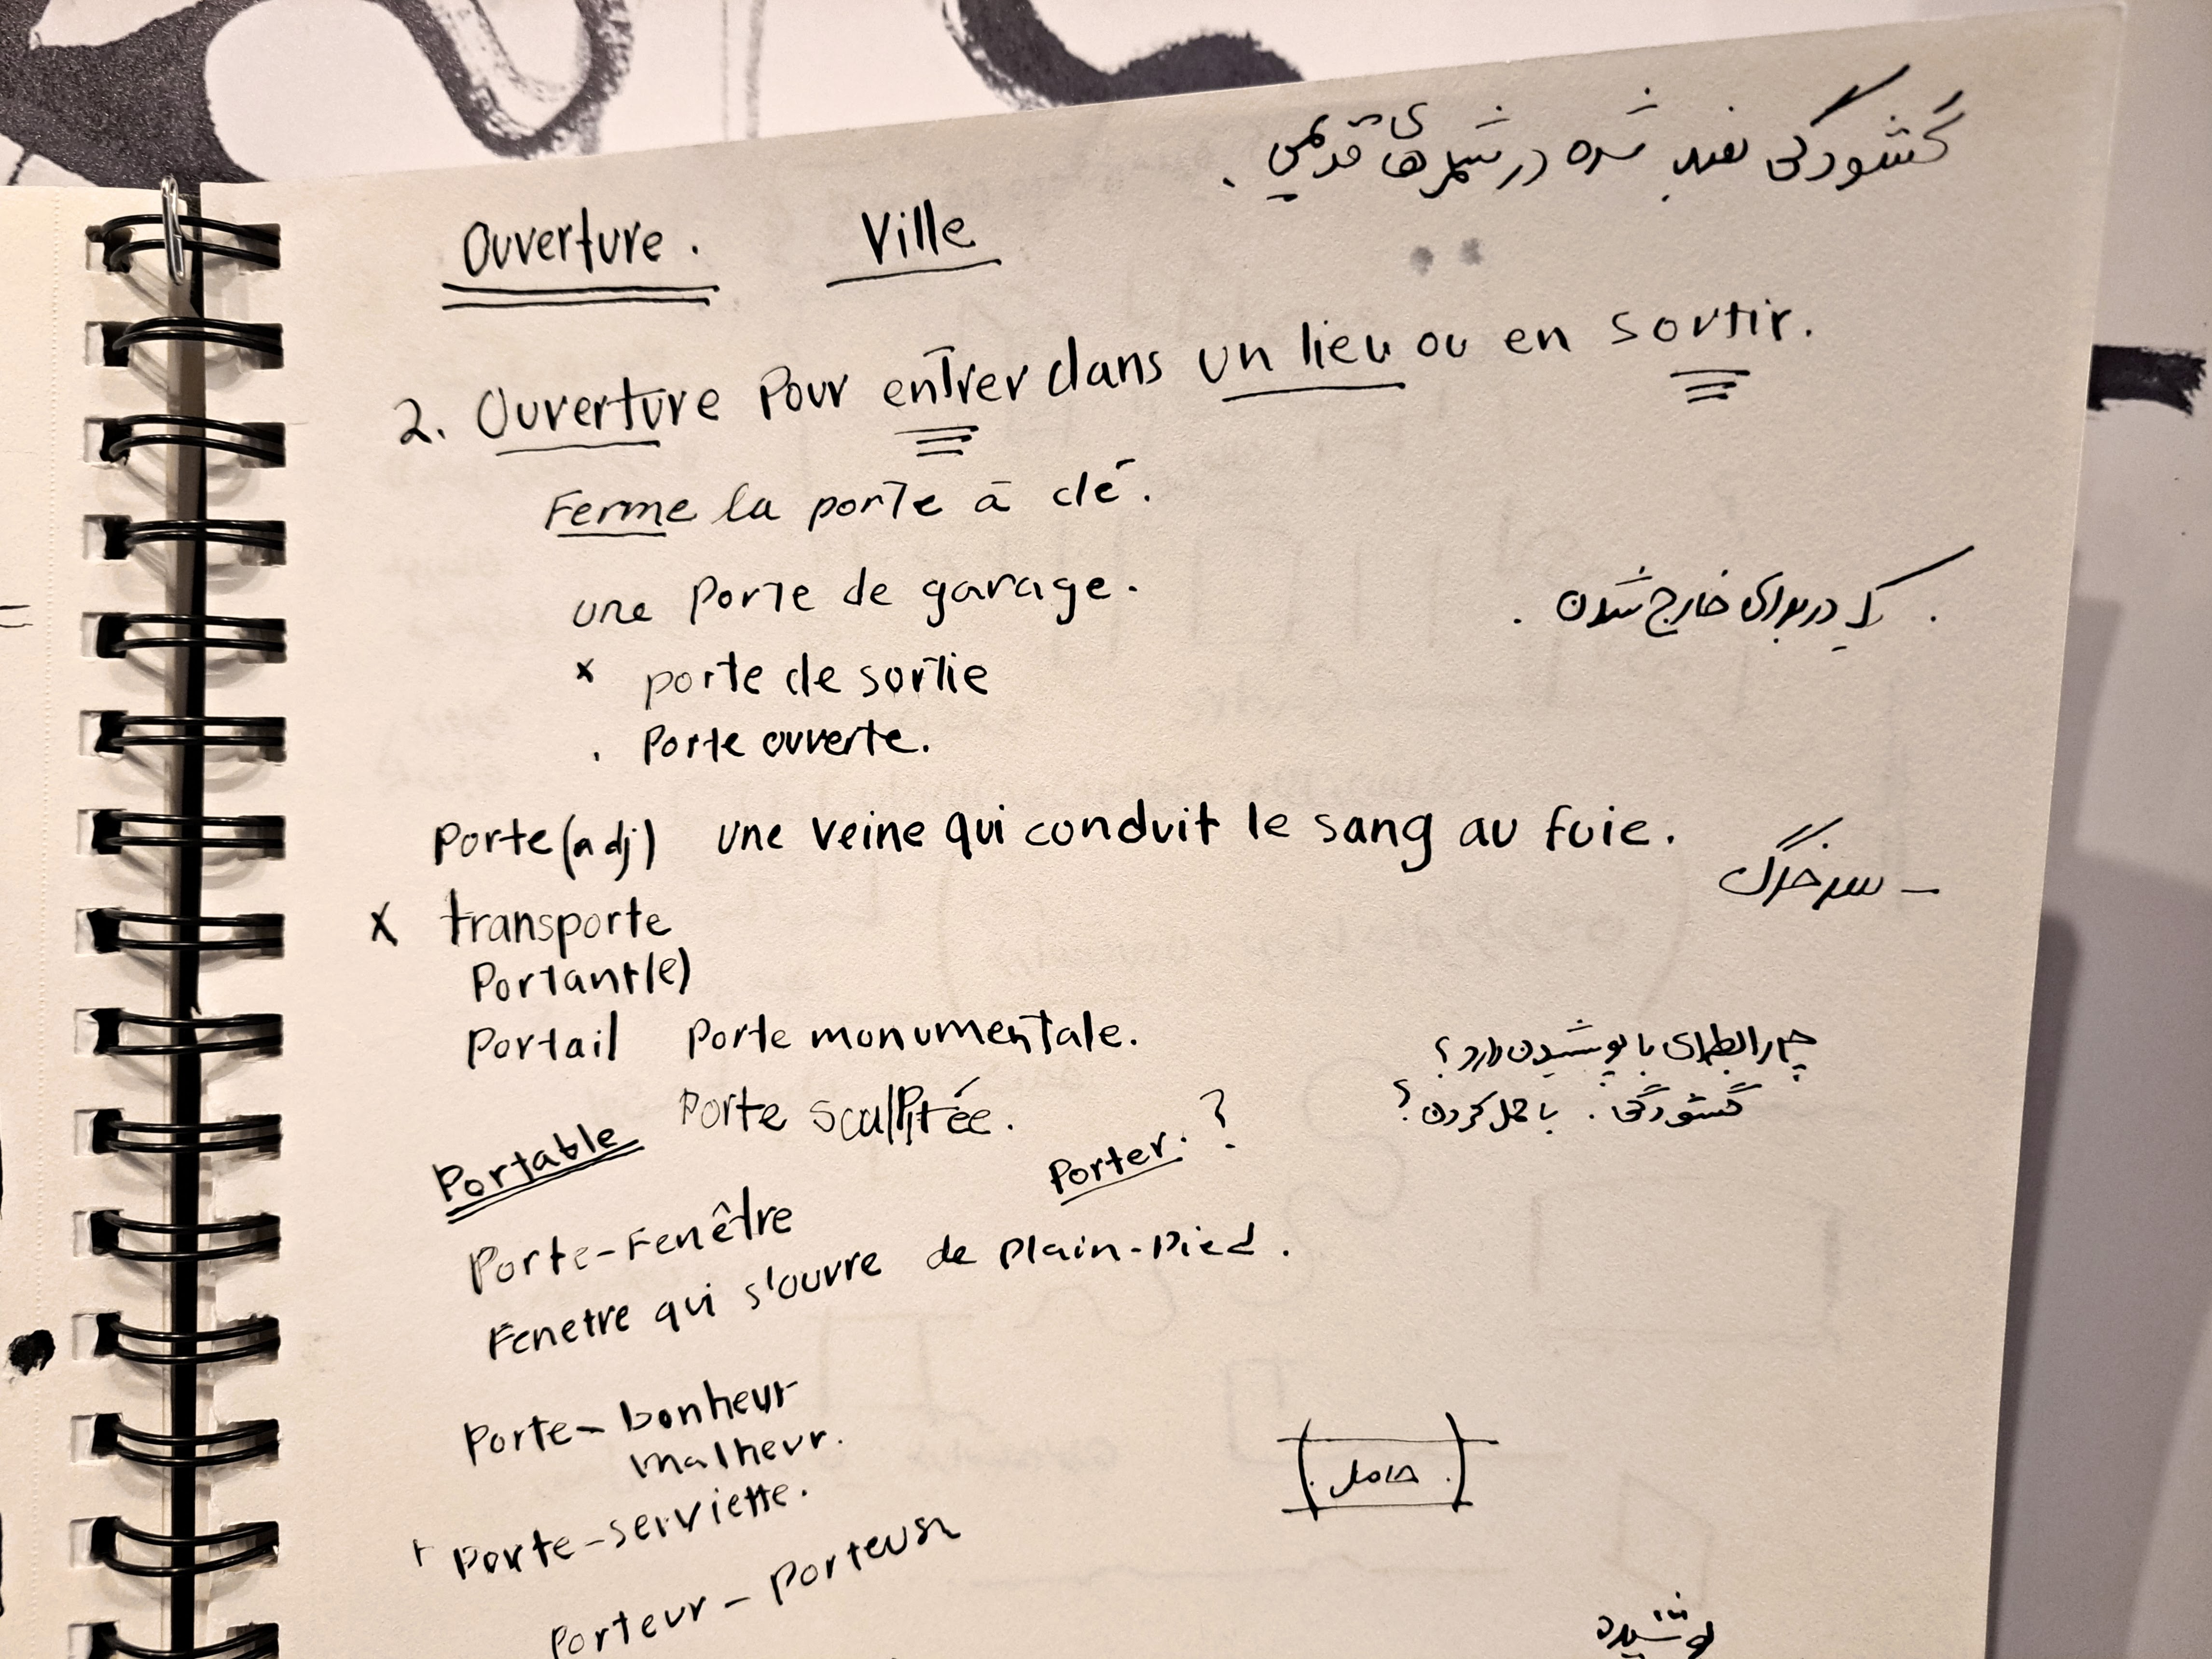 گشودگی تعبیه شده در شهرهای قدیمی .
Ouverture . Ville
2. Ouverture Pour entrer dans un lieu ou en sortir.
Ferme la porte à clé.
une Porte de garage.
x porte de sortie
. یک در برای خارج شدن .
. Porte ouverte.
Porte (adj) une veine qui conduit le sang au foie.
– سرخرگ
x transporte
Portant(e)
Portail Porte monumentale.
چه رابطه‌ای با پوشیدن دارد؟
Porte sculptée.
گشودگی . با حمل کردن؟
Portable
Porter. ?
Porte-Fenêtre
Fenetre qui s'ouvre de Plain-Pied .
Porte-bonheur
malheur.
(. حامل .)
Porte-serviette.
Porteur – Porteuse
پوشیده